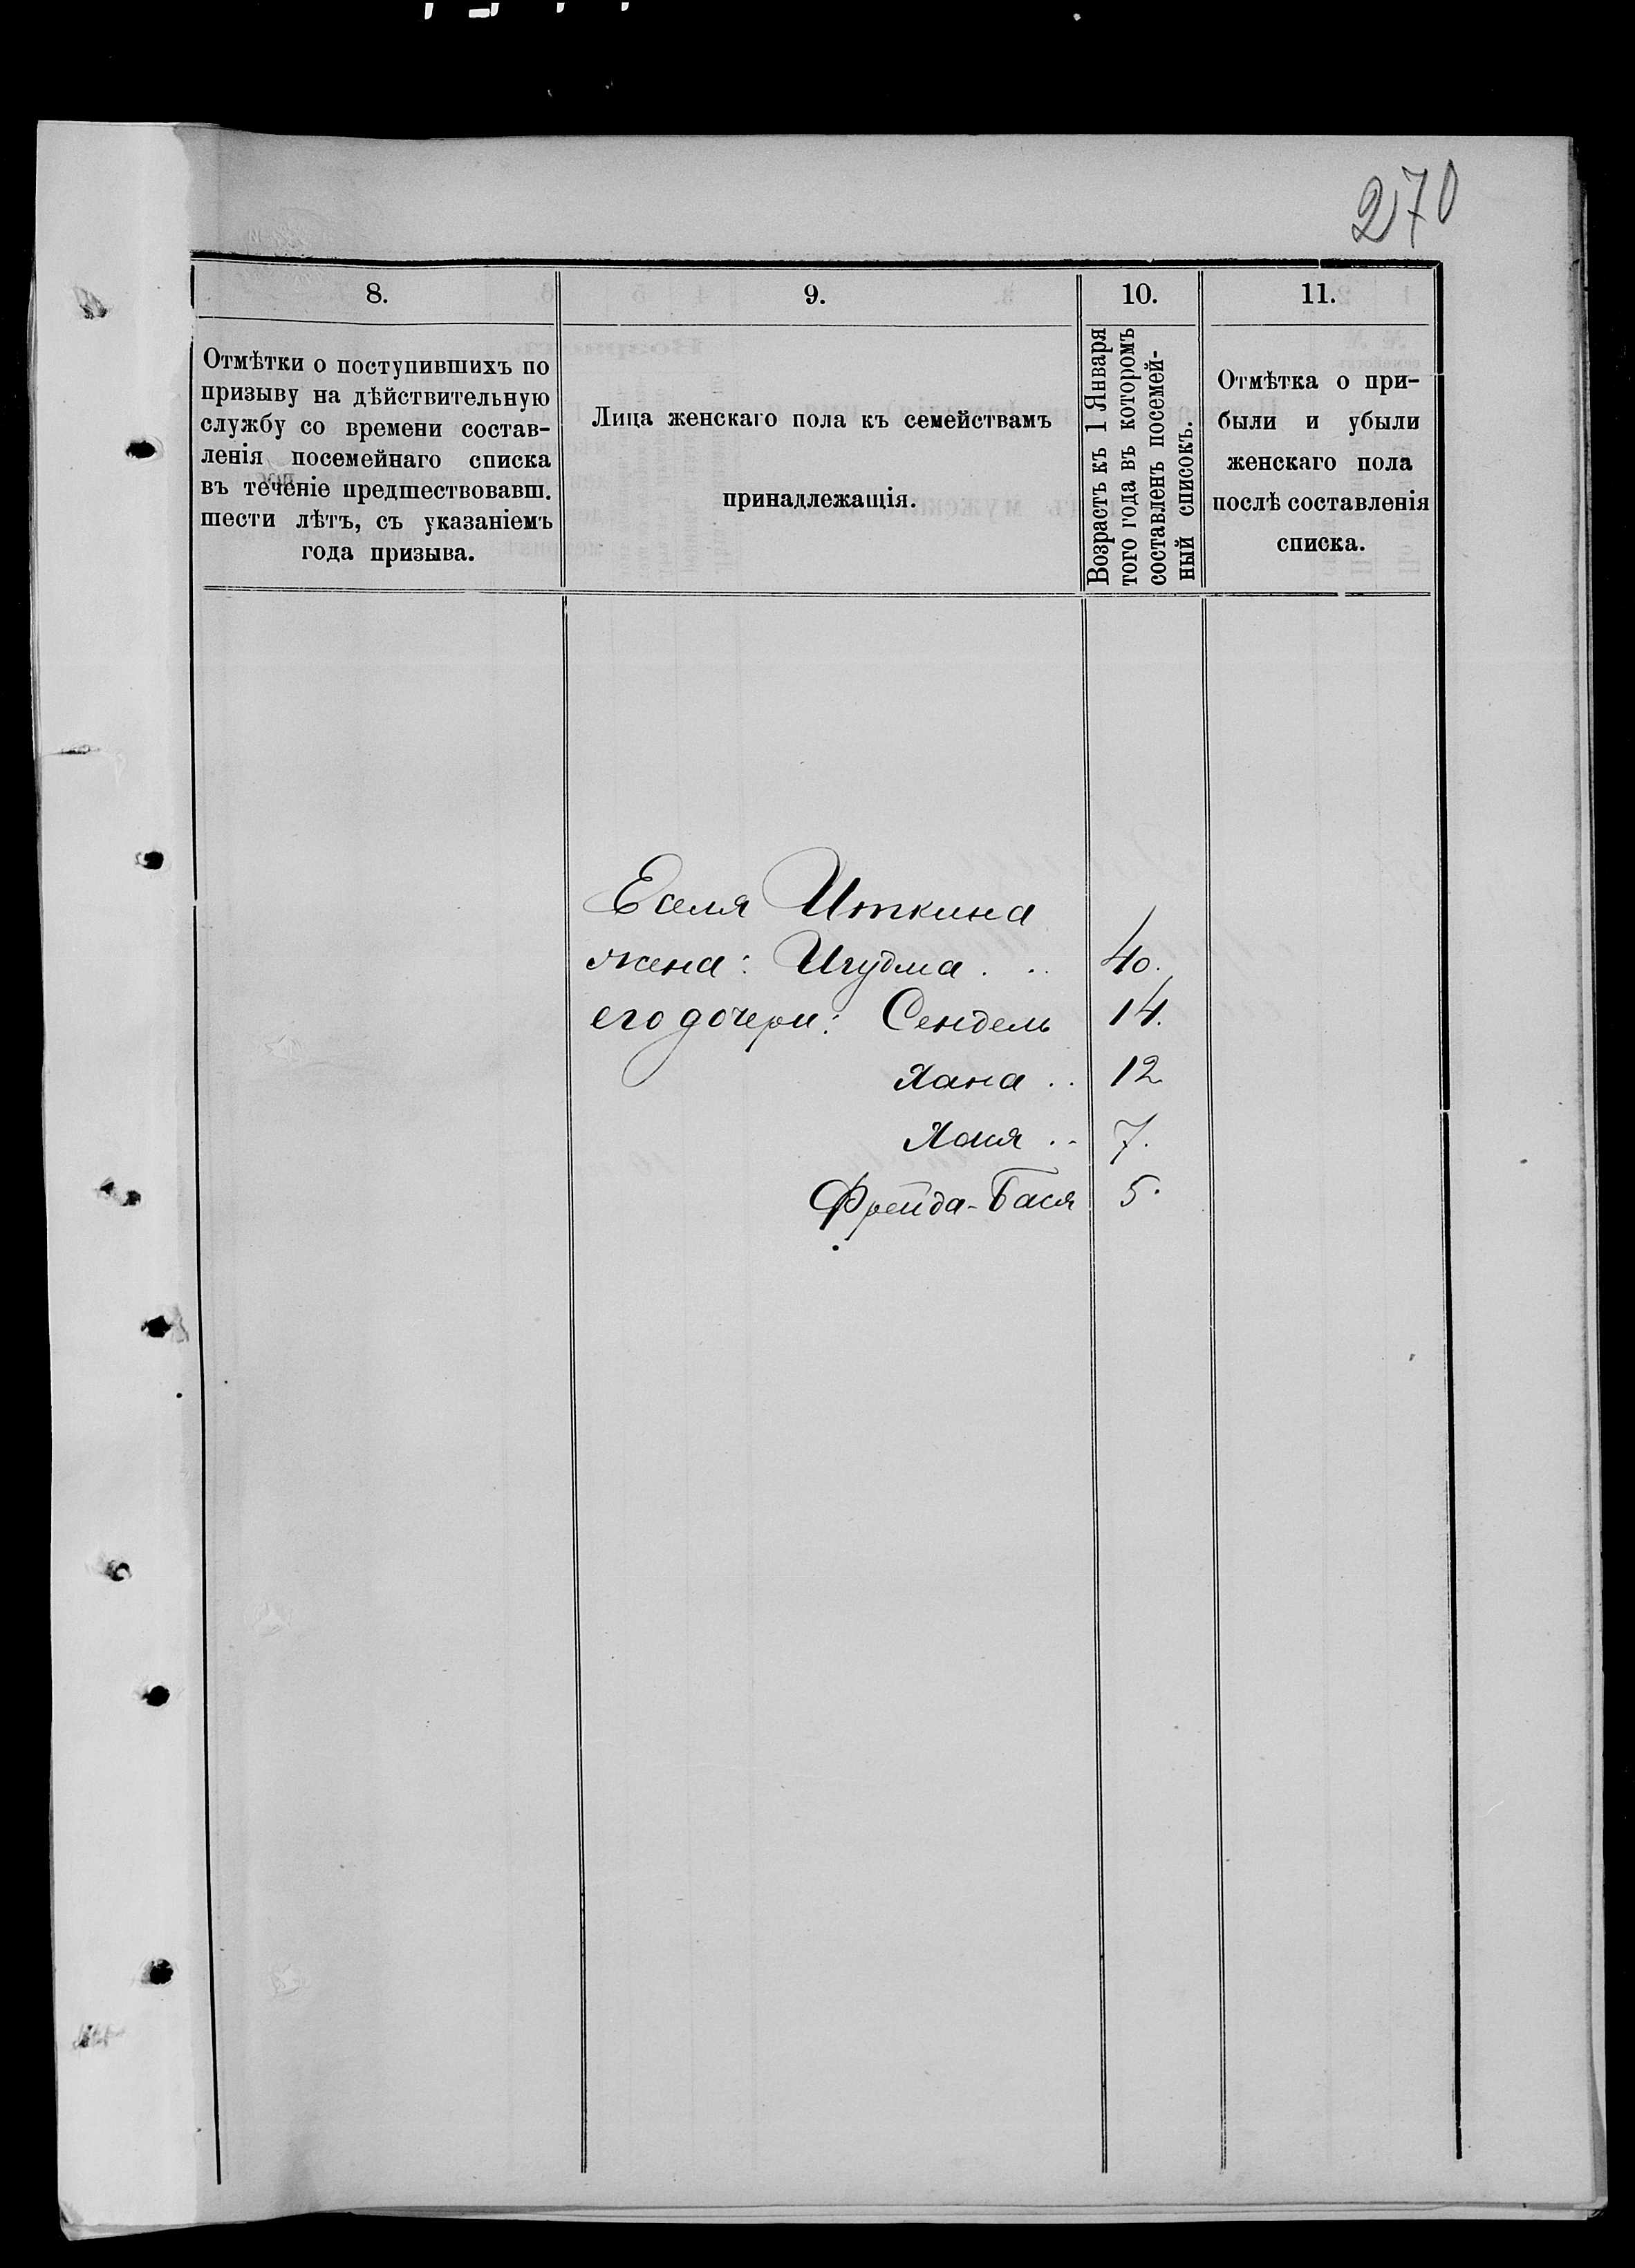 270
8.
9.
10.
11.
Отмѣтки о поступившихъ по
призыву на дѣйствительную
службу со времени состав-
ленія посемейнаго списка
въ теченіе предшествовавш.
шести лѣтъ, съ указаніемъ
года призыва.
Лица женскаго пола къ семействамъ
принадлежащія.
Возрастъ къ 1 Января
того года въ которомъ
составленъ посемей-
ный списокъ.
Отмѣтка о при-
были и убыли
женскаго пола
послѣ составленія
списка.
Еселя Иткина
жена: . . 40.
его дочери: Сендель 14.
Хана . . 12
7.
Фрейда-Бася 5.